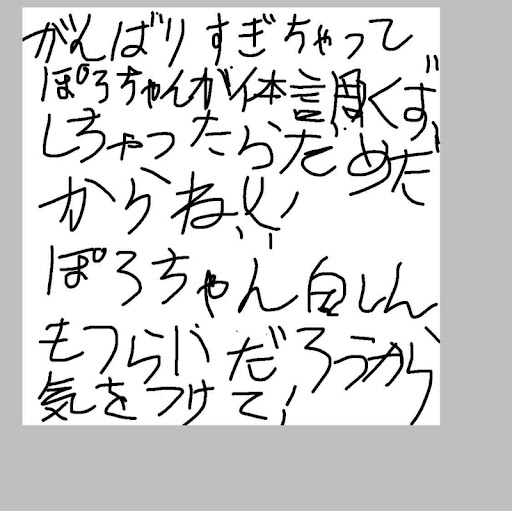 がんばりすぎちゃって
ぽろちゃんが体調くず
しちゃったらだめだ
からね!!
ぽろちゃん自しん
もつらいだろうから
気をつけて!